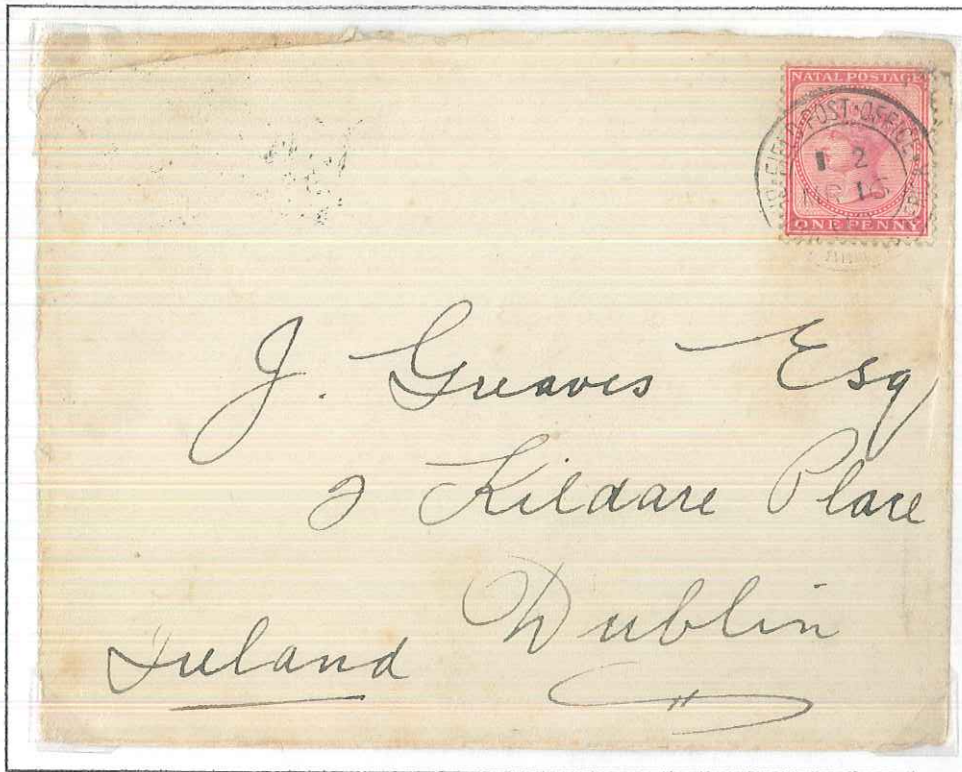 NATAL POSTAGE
FIELD POST OFFICE
2
15
ONE PENNY
J. Greaves Esq
2 Kildare Place
Dublin
Ireland